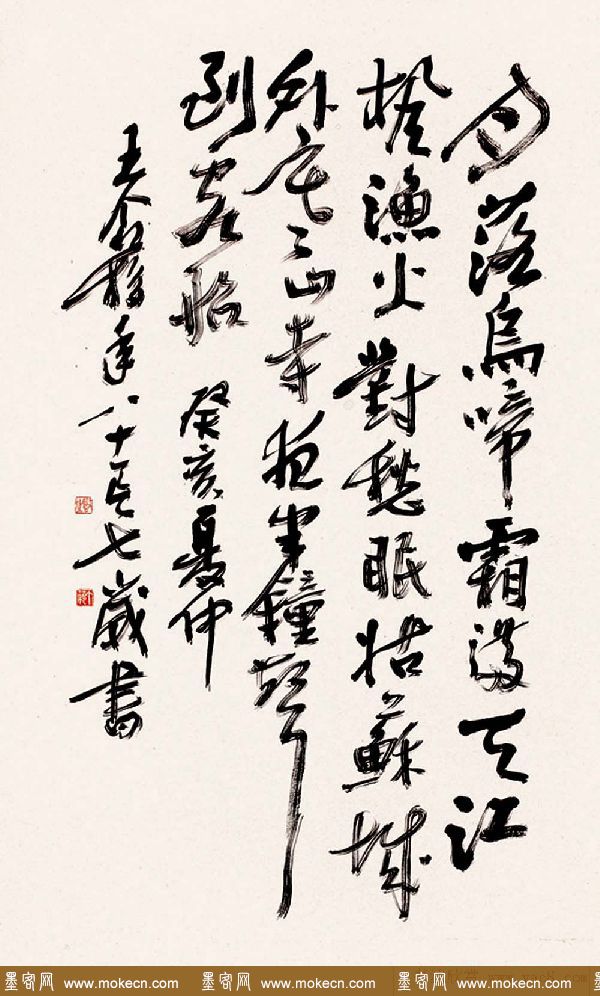 月落烏啼霜滿天江
楓漁火對愁眠姑蘇城
外寒山寺夜半鐘聲
到客船 癸亥夏仲
王个簃年八十有七歲書
墨客网 www.mokecn.com 墨客网 www.mokecn.com 墨客网 www.mokecn.com